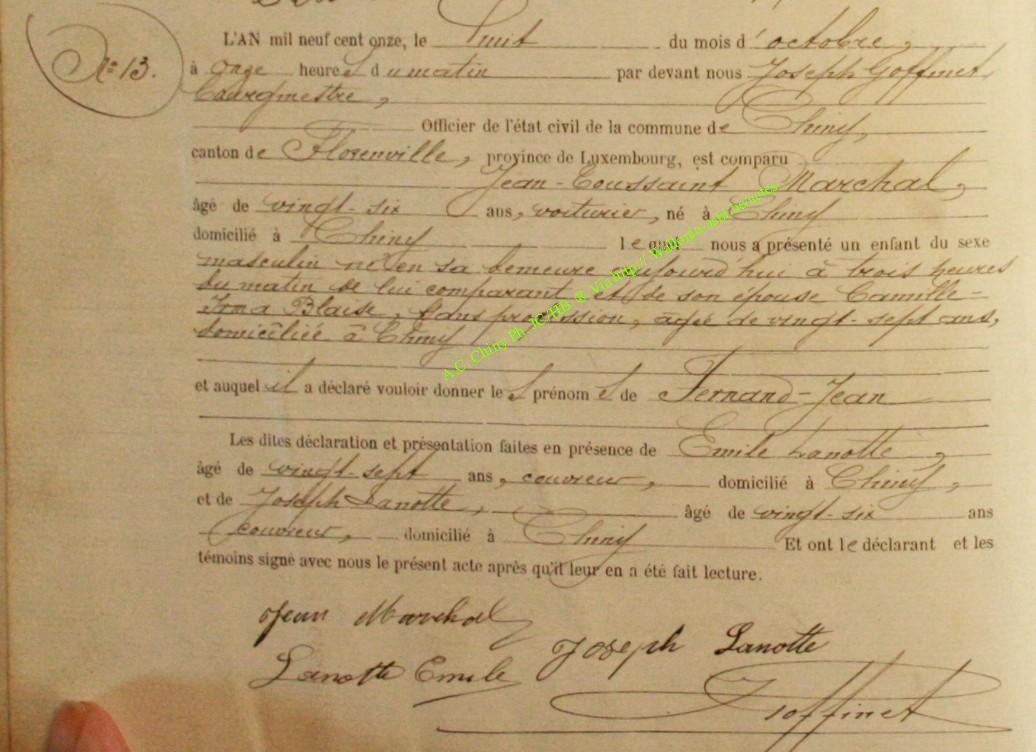 N° 13.
L'AN mil neuf cent onze, le huit du mois d'octobre,
à onze heures du matin par devant nous Joseph Goffinet,
bourgmestre,
Officier de l'état civil de la commune de Chiny,
canton de Florenville, province de Luxembourg, est comparu
Jean-Toussaint Marchal,
âgé de vingt-six ans, voiturier, né à Chiny
domicilié à Chiny lequel nous a présenté un enfant du sexe
masculin né en sa demeure aujourd'hui à trois heures
du matin de lui comparant et de son épouse Camille-
Irma Blaise, sans profession, agée de vingt-sept ans,
domiciliée à Chiny
et auquel il a déclaré vouloir donner les prénoms de Fernand-Jean
Les dites déclaration et présentation faites en présence de Emile Lanotte,
âgé de vingt-sept ans, couvreur, domicilié à Chiny,
et de Joseph Lanotte, âgé de vingt-six ans
couvreur, domicilié à Chiny Et ont le déclarant et les
témoins signé avec nous le présent acte après qu'il leur en a été fait lecture.
Jean Marchal
Joseph Lanotte
Lanotte Emile
Goffinet
A.C. Chiny Ph JC/HB @ Via http://